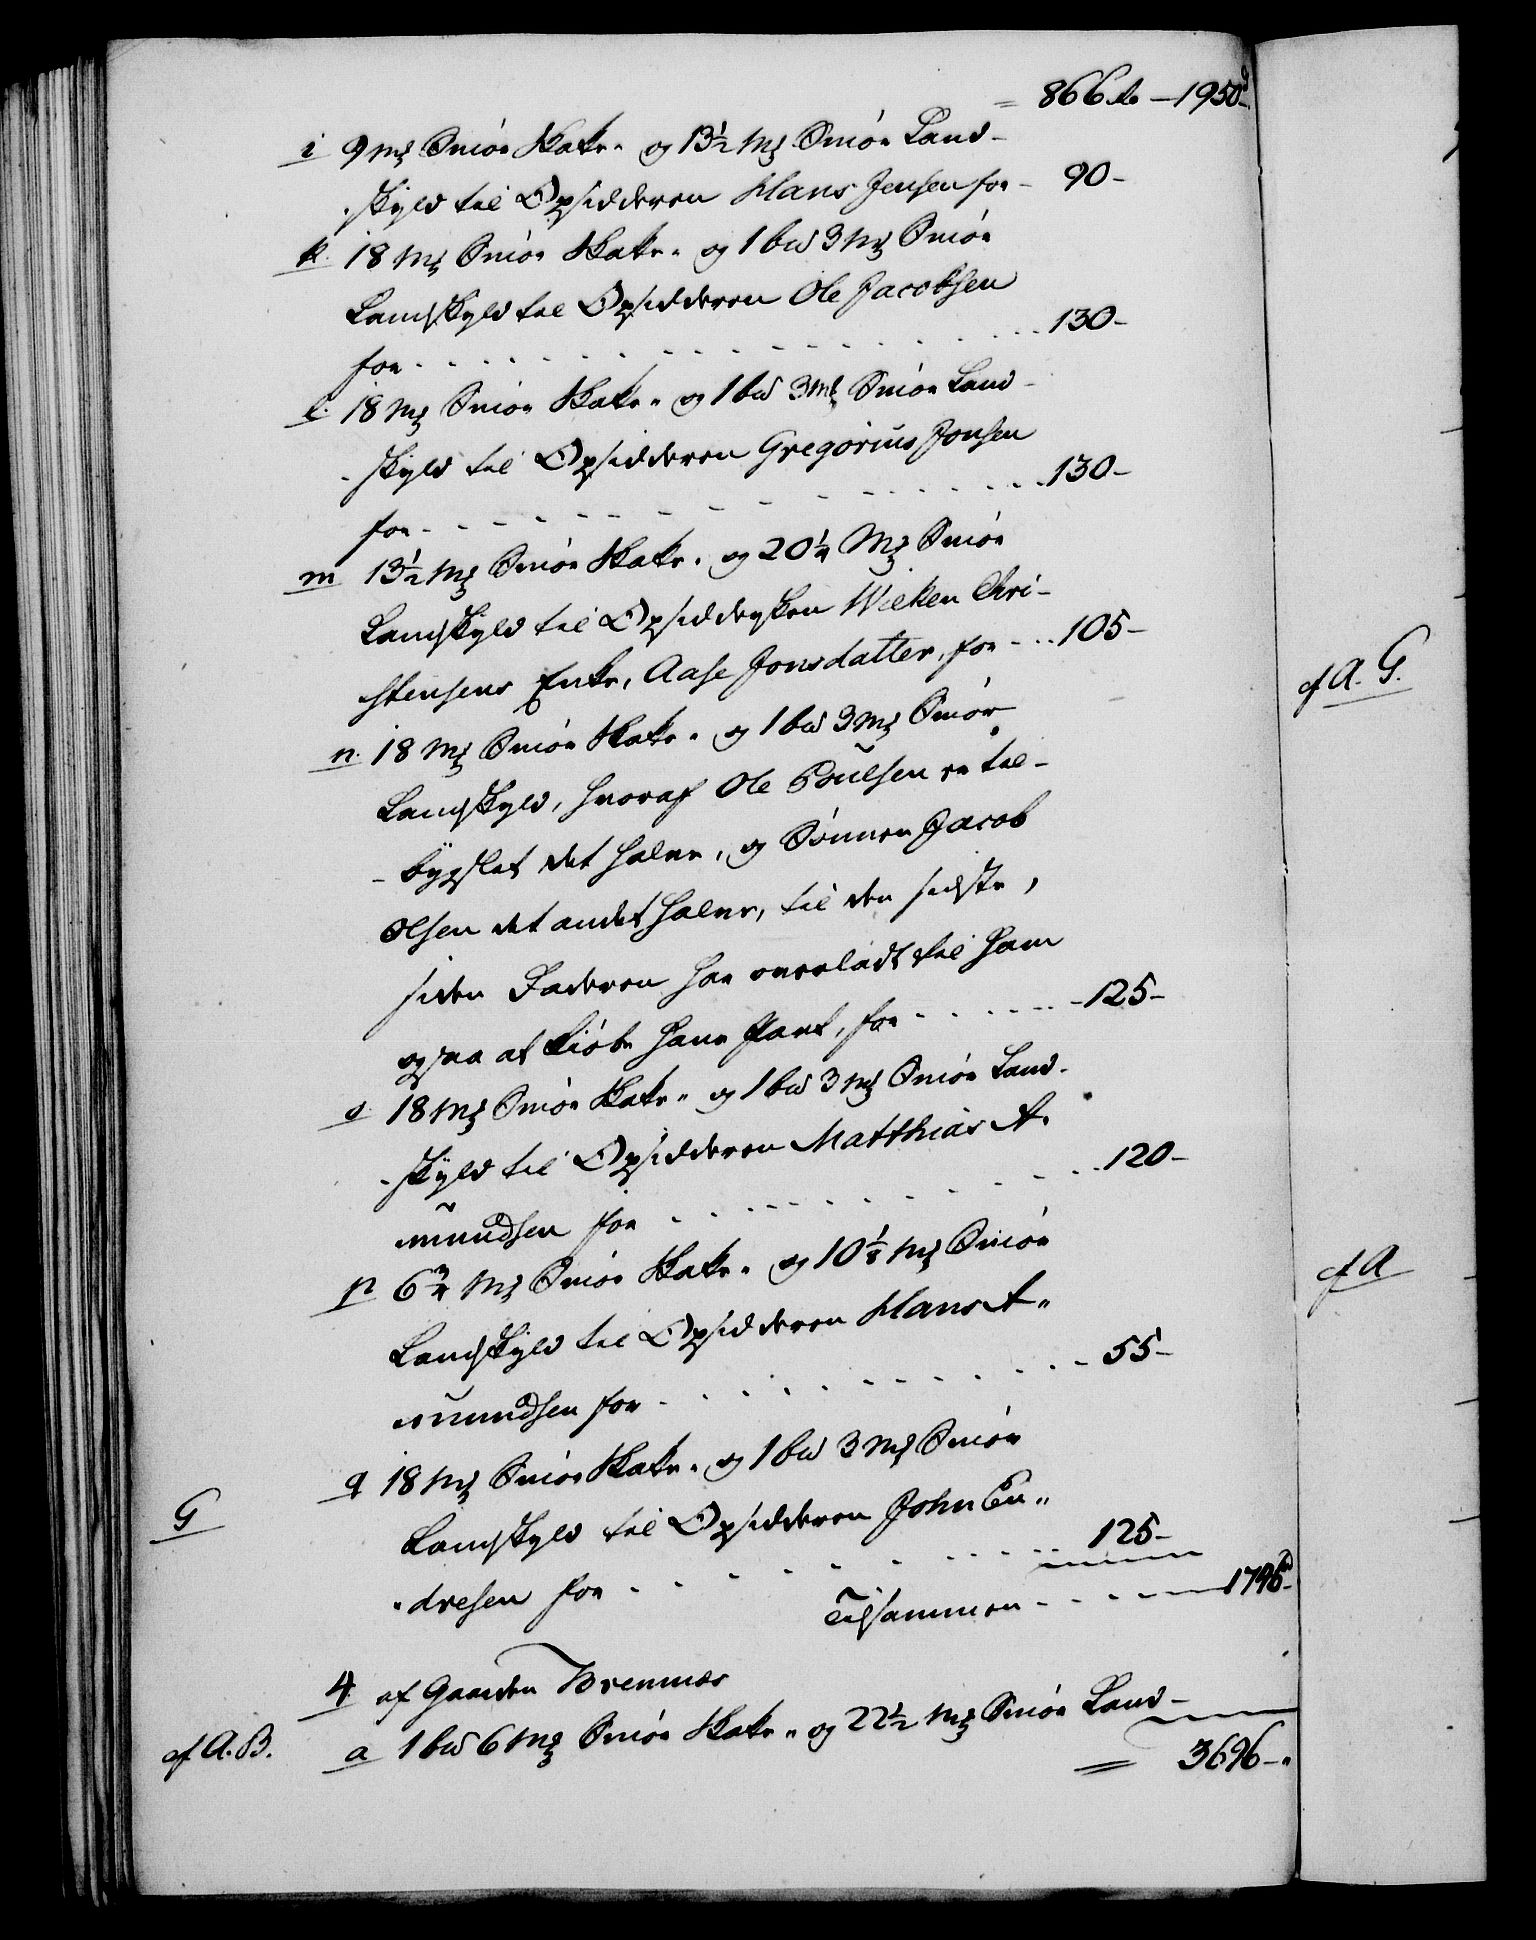 = 866 rd — 1950 rd
i 9 mk Smör Skatt- og 13½ mk Smör Land-
skyld til Opsidderen Hans Jensen for - 90 -
k. 18 mk Smör Skatt- og 1 bw 3 mk Smör
Landskyld til Opsidderen Ole Jacobsen
for - - - 130 -
l. 18 mk Smör Skatt- og 1 bw 3 mk Smör Land-
skyld til Opsidderen Gregorius Jonsen
for - - - 130 -
m 13½ mk Smör Skatt- og 20¼ mk Smör
Landskyld til Opsiddersken Wilken Chri-
stensens Enke, Aase Jonsdatter, for - - 105 -
n. 18 mk Smör Skatt- og 1 bw 3 mk Smör
Landskyld, hvoraf Ole Poulsen er til-
bygslet det halve, og Sönnen Jacob
Olsen det andet halve, til den sidste,
siden Faderen har overladt til ham
ogsaa at kiöbe hans Part, for - - - 125 -
o. 18 mk Smör Skatt- og 1 bw 3 mk Smör Land-
skyld til Opsidderen Matthias A-
mundsen for - - - 120 -
p 6¾ mk Smör Skatt- og 10⅛ mk Smör
Landskyld til Opsidderen Hans A-
mundsen for - - - 55 -
q 18 mk Smör Skatt- og 1 bw 3 mk Smör
Landskyld til Opsidderen John En-
dresen for - - - 125 -
G
Tilsammen - - - 1746 rd
4 af Gaarden Brennæs
cf A. B. a 1 bw 6 mk Smör Skatt- og 22½ mk Smör Land-
= 3696 - "
cf A. G.
cf A